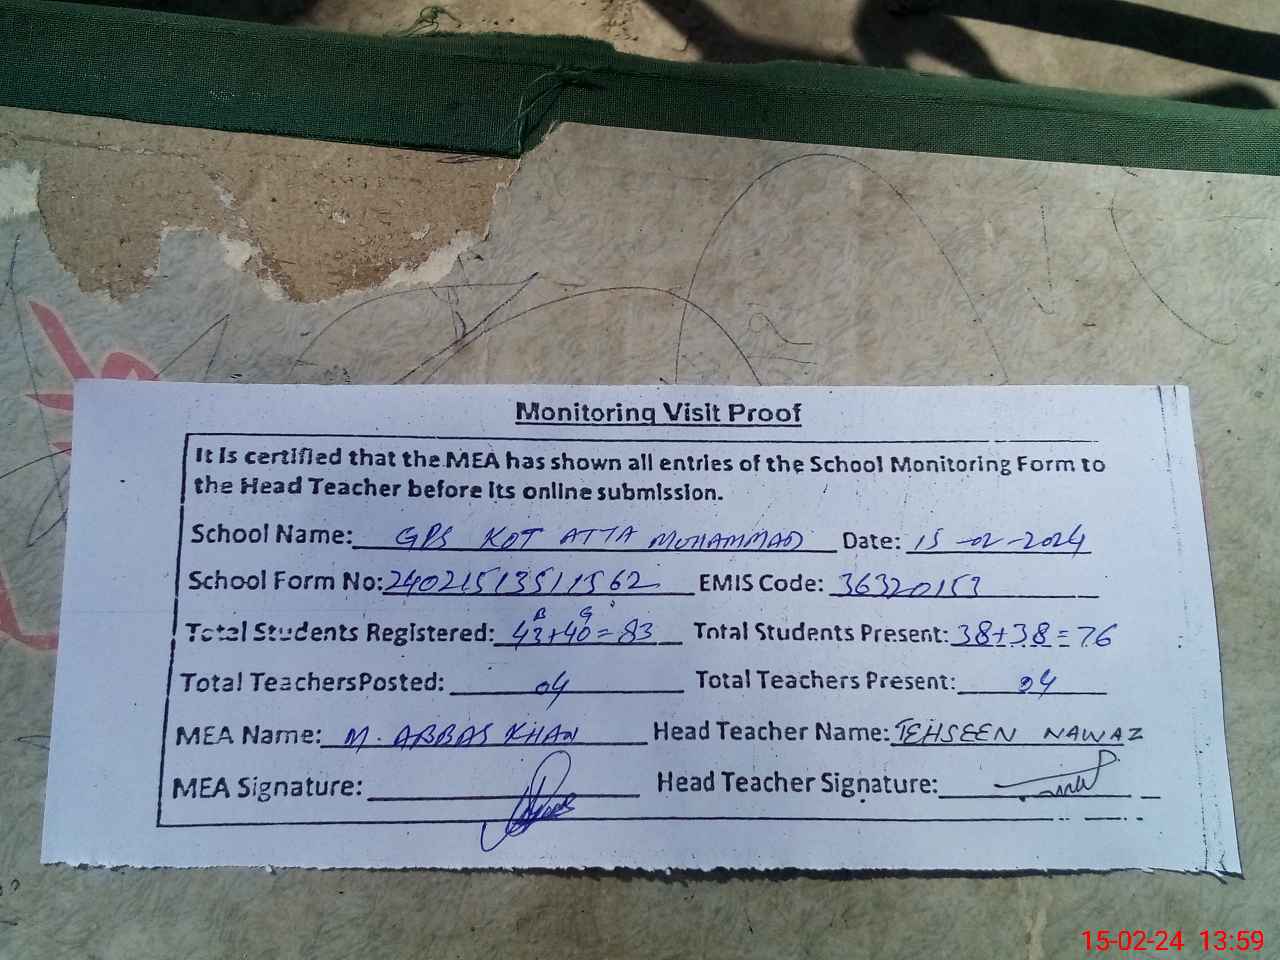 Monitoring Visit Proof
It is certified that the MEA has shown all entries of the School Monitoring Form to
the Head Teacher before its online submission.
School Name: GPS KOT ATTA MUHAMMAD Date: 15-02-2024
School Form No: 24021513511562 EMIS Code: 36320153
B G
Total Students Registered: 43+40=83 Total Students Present: 38+38=76
Total TeachersPosted: 04 Total Teachers Present: 04
MEA Name: M. ABBAS KHAN Head Teacher Name: TEHSEEN NAWAZ
MEA Signature: Head Teacher Signature:
15-02-24 13:59